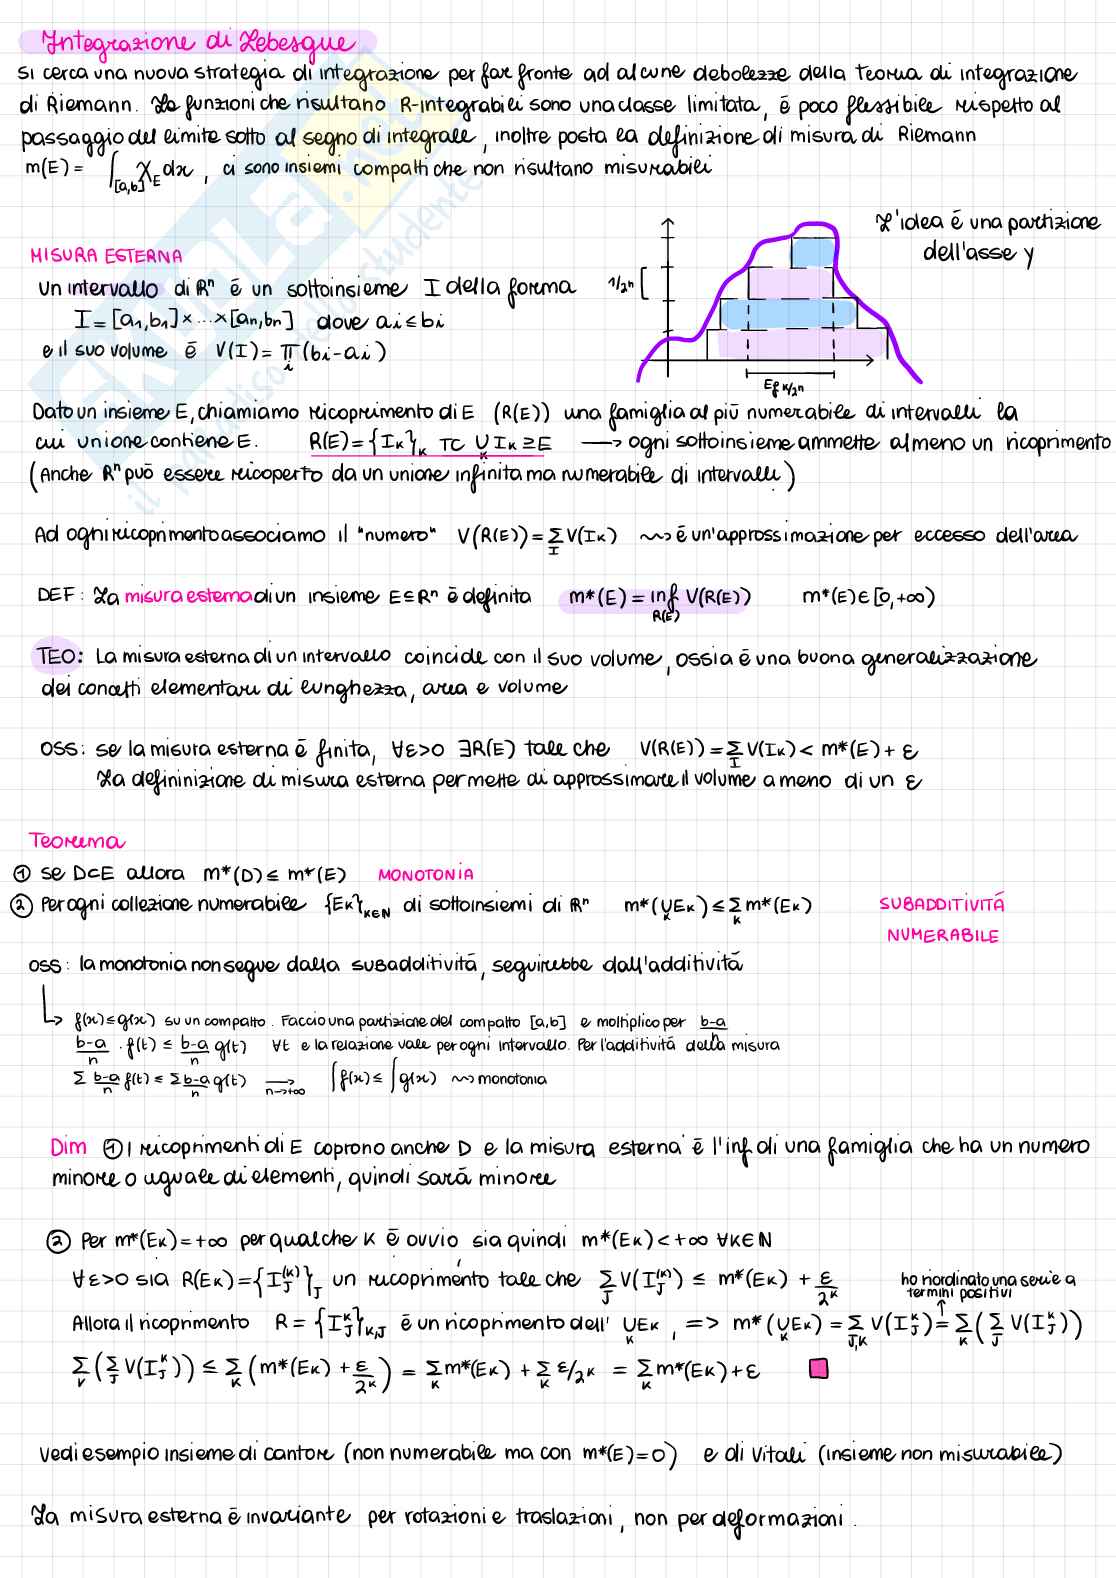 Integrazione di Lebesgue
Si cerca una nuova strategia di integrazione per far fronte ad alcune debolezze della teoria di integrazione
di Riemann. Le funzioni che risultano R-integrabili sono una classe limitata, é poco flessibile rispetto al
passaggio del limite sotto al segno di integrale, inoltre posta la definizione di misura di Riemann
m(E) = ∫_[a,b] χ_E dx, ci sono insiemi compatti che non risultano misurabili
L'idea é una partizione
dell'asse y
1/2ⁿ
E_f,k/2ⁿ
MISURA ESTERNA
Un intervallo di Rⁿ é un sottoinsieme I della forma
I = [a₁,b₁] × ... × [an,bn] dove ai ≤ bi
e il suo volume é V(I) = ∏_i (bi-ai)
Dato un insieme E, chiamiamo ricoprimento di E (R(E)) una famiglia al piú numerabile di intervalli la
cui unione contiene E. R(E) = {Iк}_к TC ∪_к Iк ⊇ E → ogni sottoinsieme ammette almeno un ricoprimento
(Anche Rⁿ puó essere ricoperto da un unione infinita ma numerabile di intervalli)
Ad ogni ricoprimento associamo il "numero" V(R(E)) = Σ_I V(Iк) ⇝ é un'approssimazione per eccesso dell'area
DEF: La misura esterna di un insieme E ⊆ Rⁿ é definita m*(E) = inf_R(E) V(R(E)) m*(E) ∈ [0,+∞)
TEO: La misura esterna di un intervallo coincide con il suo volume, ossia é una buona generalizzazione
dei concetti elementari di lunghezza, area e volume
OSS: se la misura esterna é finita, ∀ε>0 ∃R(E) tale che V(R(E)) = Σ_I V(Iк) < m*(E) + ε
La defininizione di misura esterna permette di approssimare il volume a meno di un ε
Teorema
① se D⊂E allora m*(D) ≤ m*(E) MONOTONIA
② Per ogni collezione numerabile {Eк}_к∈N di sottoinsiemi di Rⁿ m*(∪_к Eк) ≤ Σ_к m*(Eк) SUBADDITIVITÁ
NUMERABILE
OSS: la monotonia non segue dalla subadditivitá, seguirebbe dall'additivitá
↳ f(x) ≤ g(x) su un compatto. Faccio una partizione del compatto [a,b] e moltiplico per b-a
(b-a)/n · f(t) ≤ (b-a)/n g(t) ∀t e la relazione vale per ogni intervallo. Per l'additivitá della misura
Σ (b-a)/n f(t) ≤ Σ (b-a)/n g(t) →_n→+∞ ∫f(x) ≤ ∫g(x) ⇝ monotonia
Dim ① I ricoprimenti di E coprono anche D e la misura esterna é l'inf di una famiglia che ha un numero
minore o uguale di elementi, quindi sará minore
② Per m*(Eк) = +∞ per qualche K é ovvio sia quindi m*(Eк) < +∞ ∀K∈N
∀ε>0 sia R(Eк) = {I_J^(K)}_J un ricoprimento tale che Σ_J V(I_J^(K)) ≤ m*(Eк) + ε/2ᴷ
ho riordinato una serie a
termini positivi
Allora il ricoprimento R = {I_J^K}_K,J é un ricoprimento dell' ∪_к Eк, => m*(∪_к Eк) = Σ_J,K V(I_J^K) = Σ_K (Σ_J V(I_J^K))
Σ_K (Σ_J V(I_J^K)) ≤ Σ_K (m*(Eк) + ε/2ᴷ) = Σ_K m*(Eк) + Σ_K ε/2ᴷ = Σ_K m*(Eк) + ε
Vedi esempio insieme di cantor (non numerabile ma con m*(E)=0) e di Vitali (insieme non misurabile)
La misura esterna é invariante per rotazioni e traslazioni, non per deformazioni.